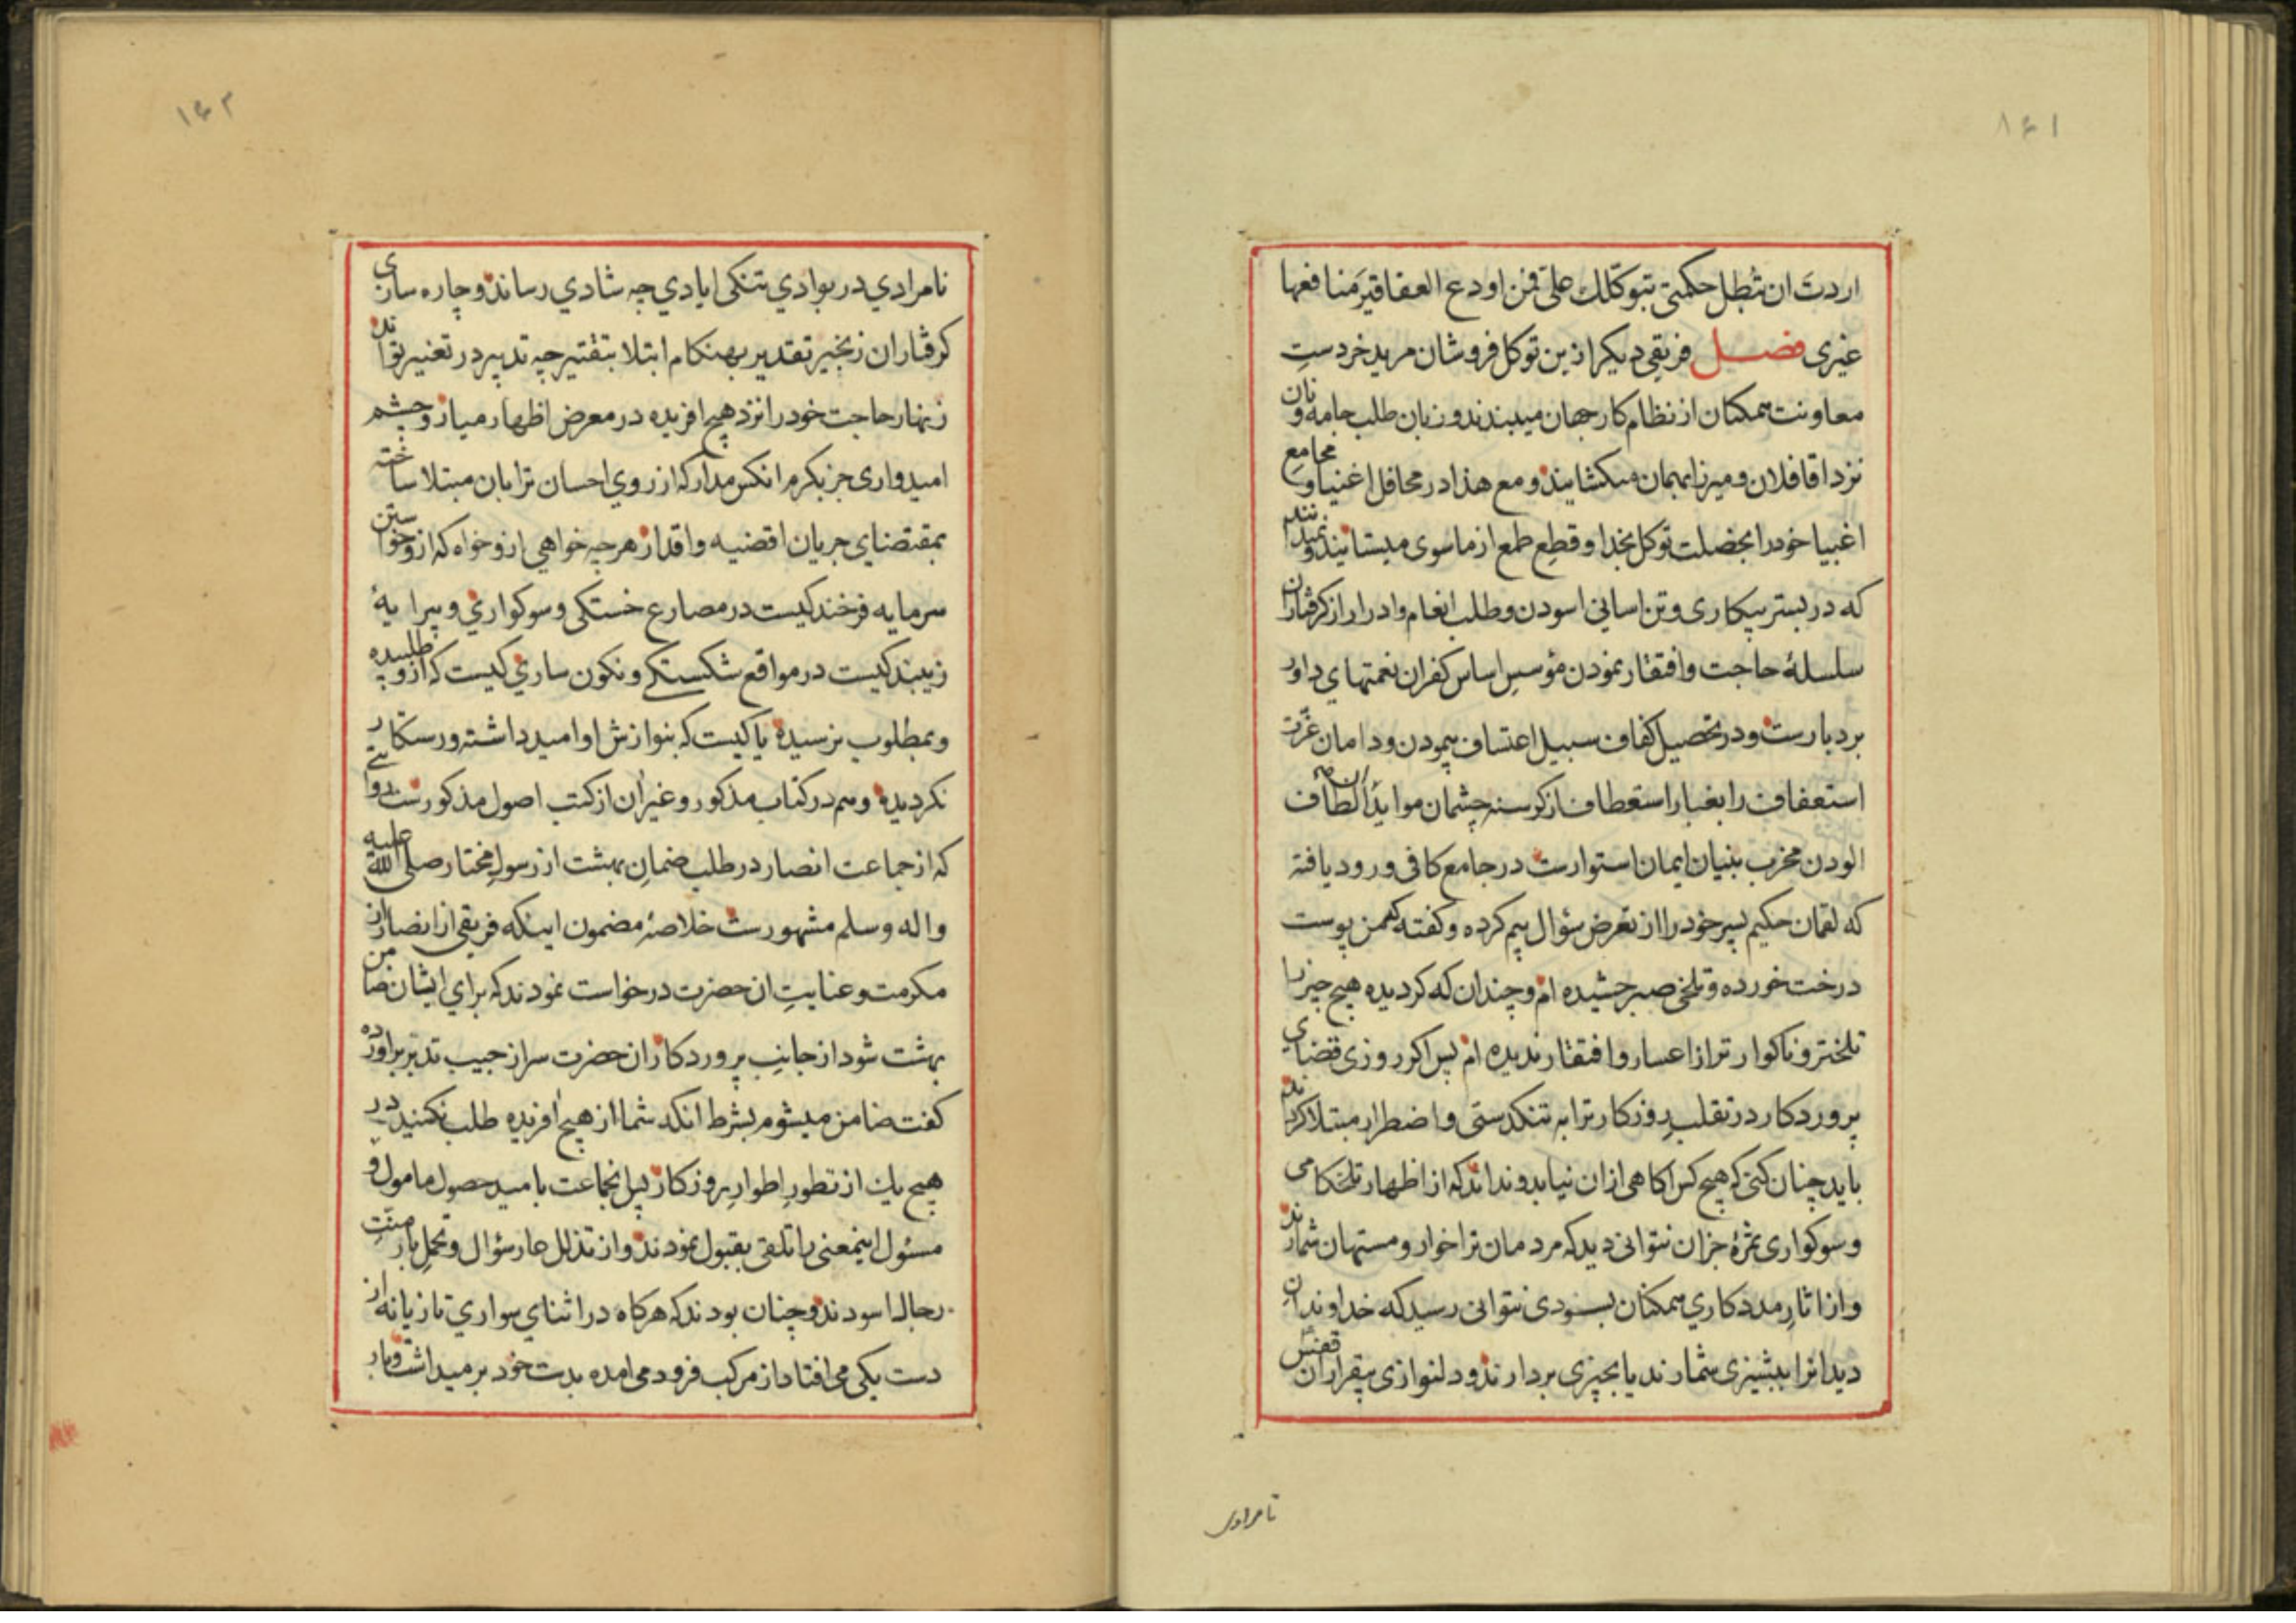 ۱۶۱
اردت ان تبطل حکمتی بتوکلک علی فمن اودع العقاقیر منافعها
غیری فصل فریقی دیکر ازین توکل فروشان مرید خرد ست
معاونت همکنان از نظام کار جهان میبندند و زبان طلب جامه و نان
نزد اقا فلان و میرزا بهمان میکشایند و مع هذا در محافل اغنیا و مجامع
اغبیا خود را بخصلت توکل بخدا و قطع طمع از ماسوی میستایند و نمیدانند
که در بستر بیکاری و تن اسانی اسودن و طلب انعام و ادرار از کرفتاران
سلسلهٔ حاجت و افتقار نمودن مؤسس اساس کفران نعمتهای داور
بردبارست و در تحصیل کفاف سبیل اعتساف پیمودن و دامان عزت
استعفاف را بغبار استعطاف از کرسنه چشمان موایدِ الطاف ان و این
الودن مخرب بنیان ایمان استوارست در جامع کافی ورود یافته
که لقمان حکیم پسر خود را از تعرض سؤال بیم کرده و کفته که من پوست
درخت خورده و تلخی صبر چشیده ام و چندان که کردیده هیچ چیز را
تلختر و ناکوارتر از اعسار و افتقار ندیده ام پس اکر روزی قضای
پروردکار در تقلب روزکار ترا به تنکدستی و اضطرار مبتلا کرداند
باید چنان کنی که هیچ کس اکاهی ازان نیابد و نداند که از اظهار تلخکامی
و سوکواری ثمرهٔ جز ان نتوانی دید که مردمان ترا خوار و مستهان شمارند
و از اثار مددکاری همکنان بسودی نتوانی رسید که خداوندان
دیدانرا ببشیزی شمارند یا بچیزی بردارند و دلنوازی بیقراران قفس
نامرادی
۱۶۲
نامرادی در بوادی تنکی ایادی چه شادی رساند و چاره سازی
کرفتاران زنجیر تقدیر بهنکام ابتلا بتقتیر چه تدبیر در تغییر تواند
زنهار حاجت خود را نزد هیچ افریده در معرض اظهار میاز و چشم
امیدواری جز بکرم انکس مدار که از روی احسان ترا بان مبتلا ساخته
بمقتضای جریان اقضیه و اقدار هر چه خواهی ازو خواه که ازو خواستن
سرمایه فرخندکیست در مصارع خستکی و سوکواری و پیرایهٔ
زیبندکیست در مواقع شکستکی و نکون ساری کیست که ازو طلبیده
و بمطلوب نرسیده یا کیست که بنوازش او امید داشته و رستکار
نکردیده و هم در کتاب مذکور و غیر ان از کتب اصول مذکورست روایتی
که از جماعت انصار در طلب ضمان بهشت از رسول مختار صلی الله علیه
و اله و سلم مشهورست خلاصهٔ مضمون اینکه فریقی از انصار از
مکرمت و عنایت ان حضرت درخواست نمودند که برای ایشان ضامن
بهشت شود از جانب پروردکار ان حضرت سر از جیب تدبر براورده
کفت ضامن میشوم بشرط انکه شما از هیچ افریده طلب نکنید در
هیچ یک از تطور اطوار روزکار پس انجماعت بامید حصول مامول و
مسئول اینمعنی را تلقی بقبول نمودند و از تذلل عار سؤال و تحمل بار منت
رجال اسودند و چنان بودند که هرکاه در اثنای سواری تازیانه از
دست یکی می افتاد از مرکب فرود می امده بدست خود بر میداشت و بار